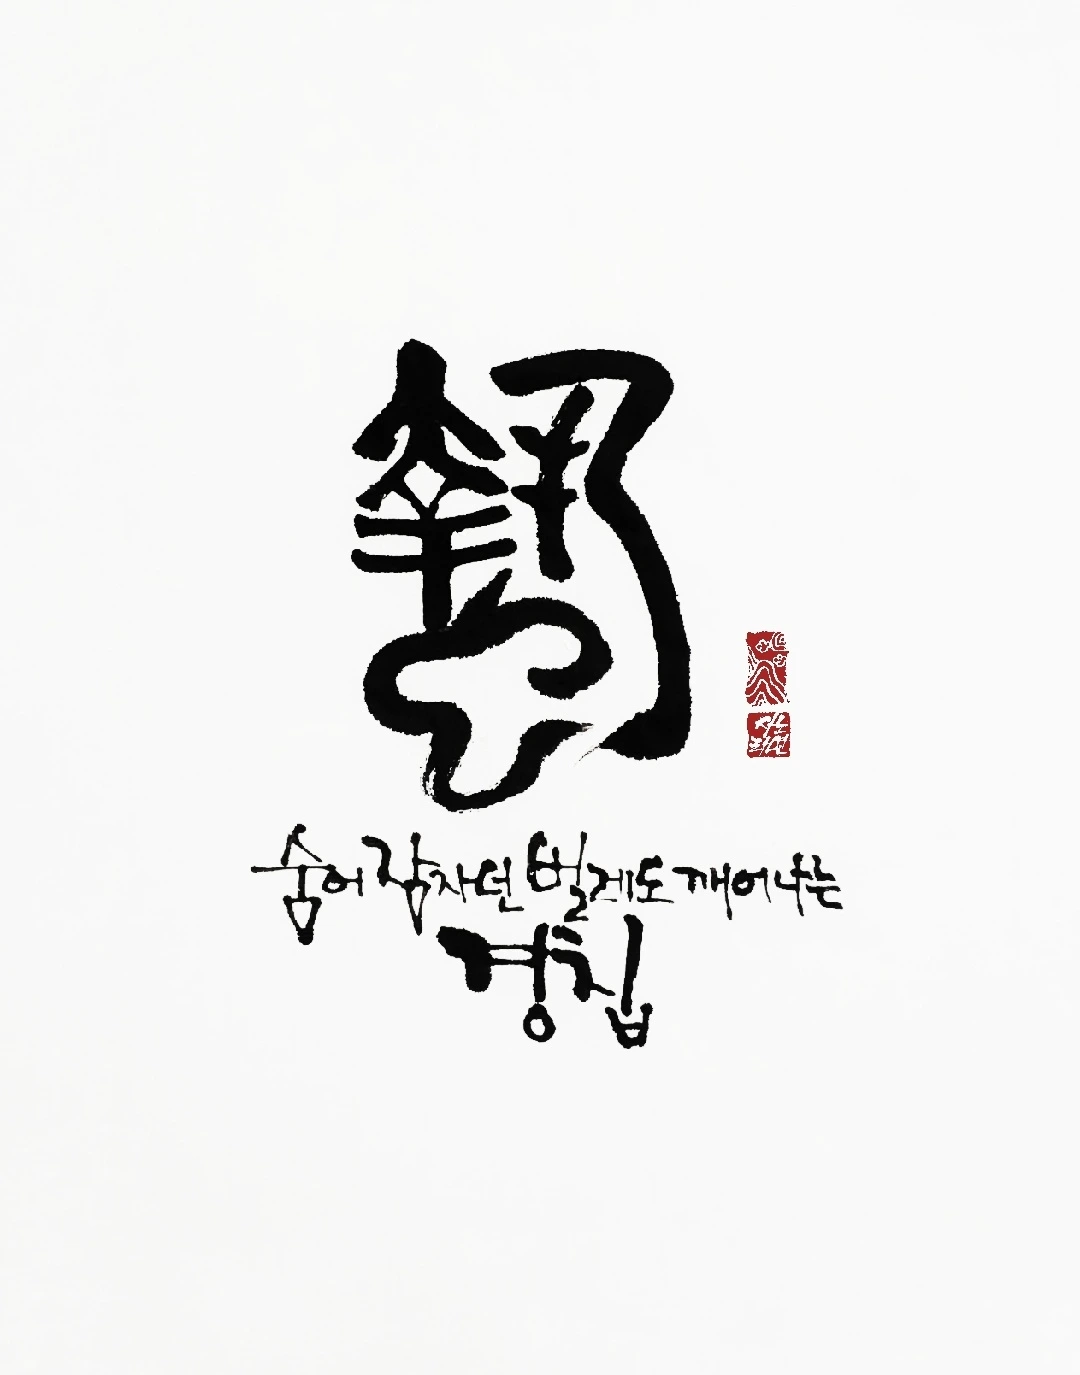 蟄
숨어 잠자던 벌레도 깨어나는
경칩